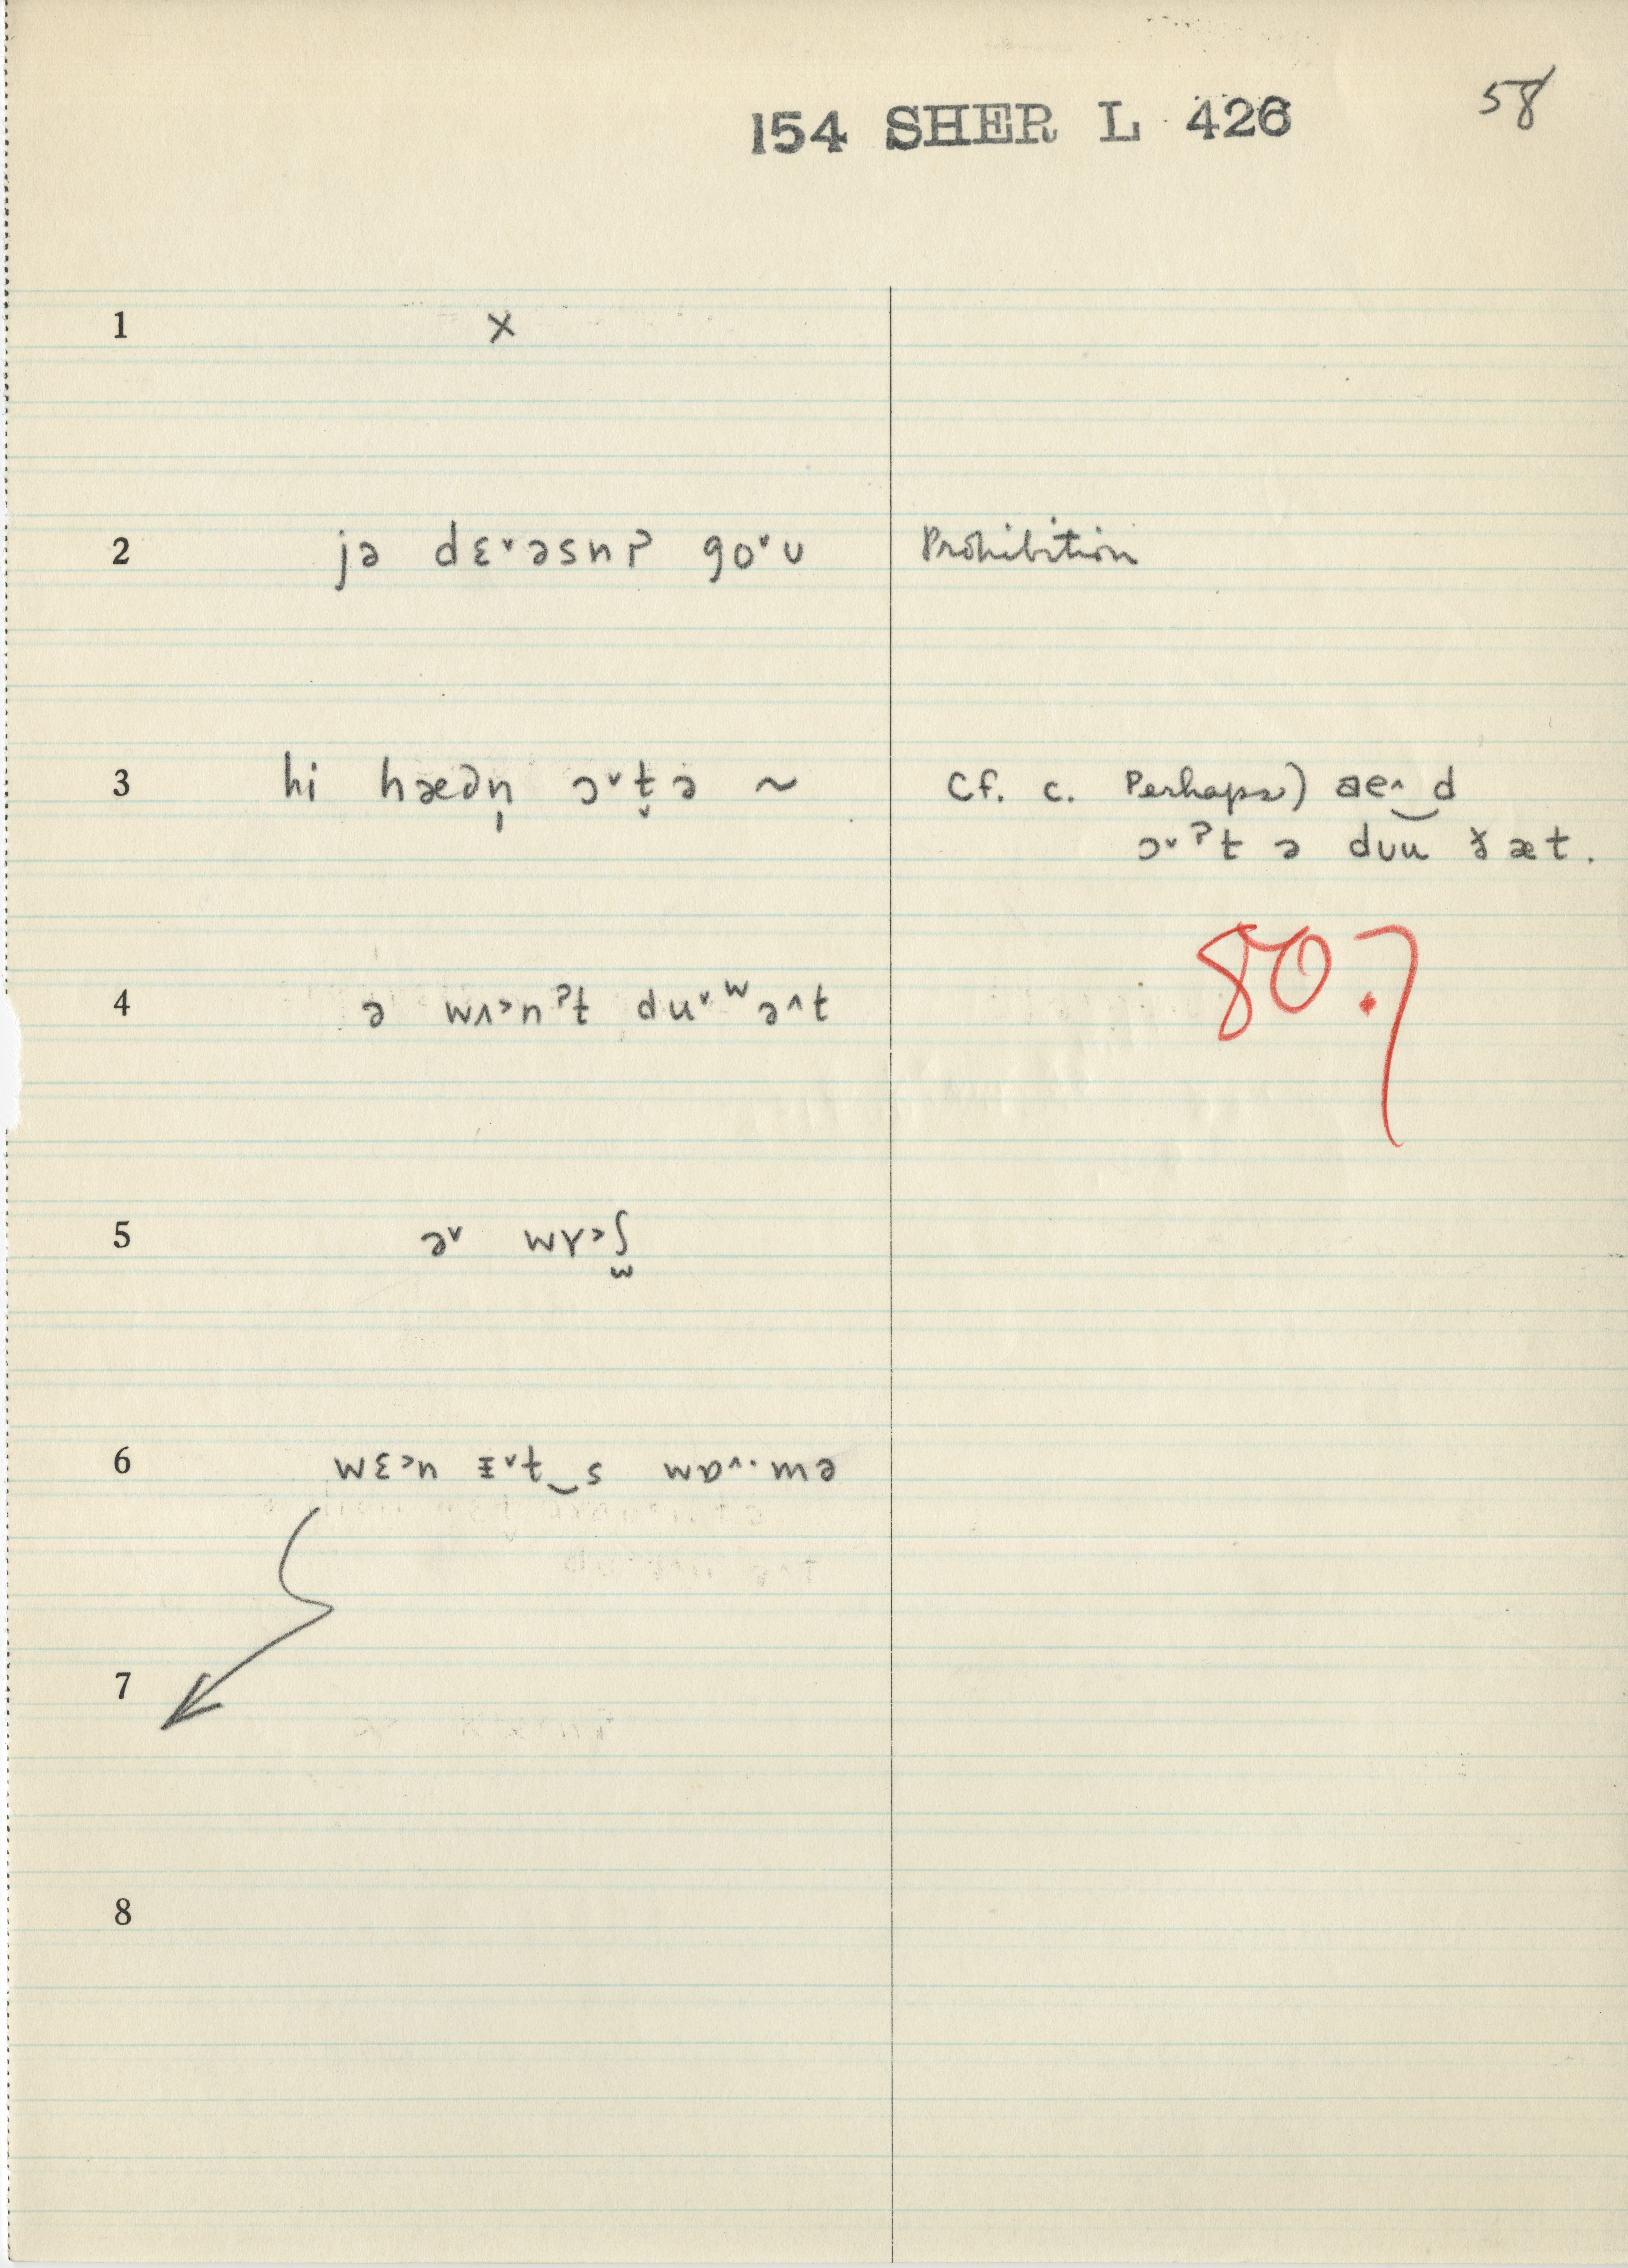 154 SHER L 426 58
1 x
2 jə dɛ˅əsnʔ go˅ʊ Prohibition
3 hi hæən̩ ɔ˅t̬ə ~ Cf. c. Perhaps) ae˄‿d
ɔ˅ˀt ə dʊu ðæt.
80.7
4 ə wʌ˃nˀt du˅ʷə˄t
5 ə˅ wɤ˃ʃ
6 wɛ˃n ɪ˅t‿s wɒ˄·mə
7
8